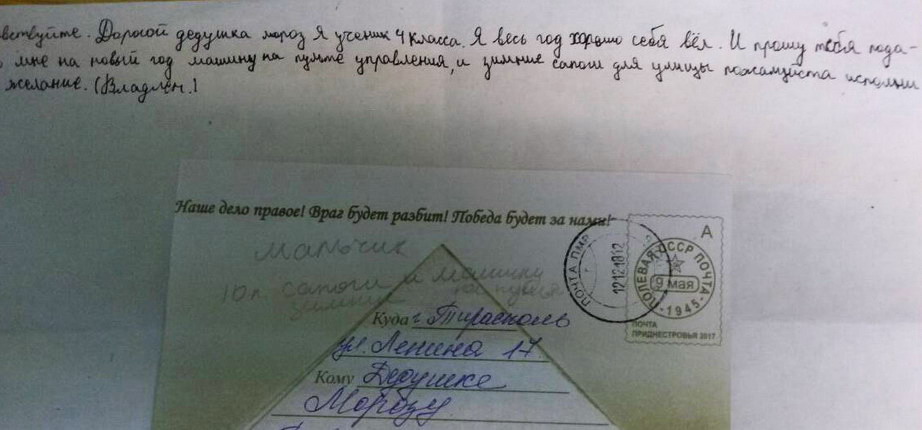 вствуйте. Дорогой дедушка мороз Я ученик 4 класса. Я весь год хорошо себя вёл. И прошу тебя пода-
мне на новый год машину на пульте управления, и зимние сапоги для улицы пожалуйста исполни
желание. (Владлен.)
Наше дело правое! Враг будет разбит! Победа будет за нами!
мальчик
10л. сапоги и машинку
зимние
Куда г. Тирасполь
ул. Ленина 17
Кому Дедушке
Морозу
ПОЧТА ПМР
121218 12
А
ПОЛЕВАЯ СССР ПОЧТА
9 мая
1945
ПОЧТА
ПРИДНЕСТРОВЬЯ 2017